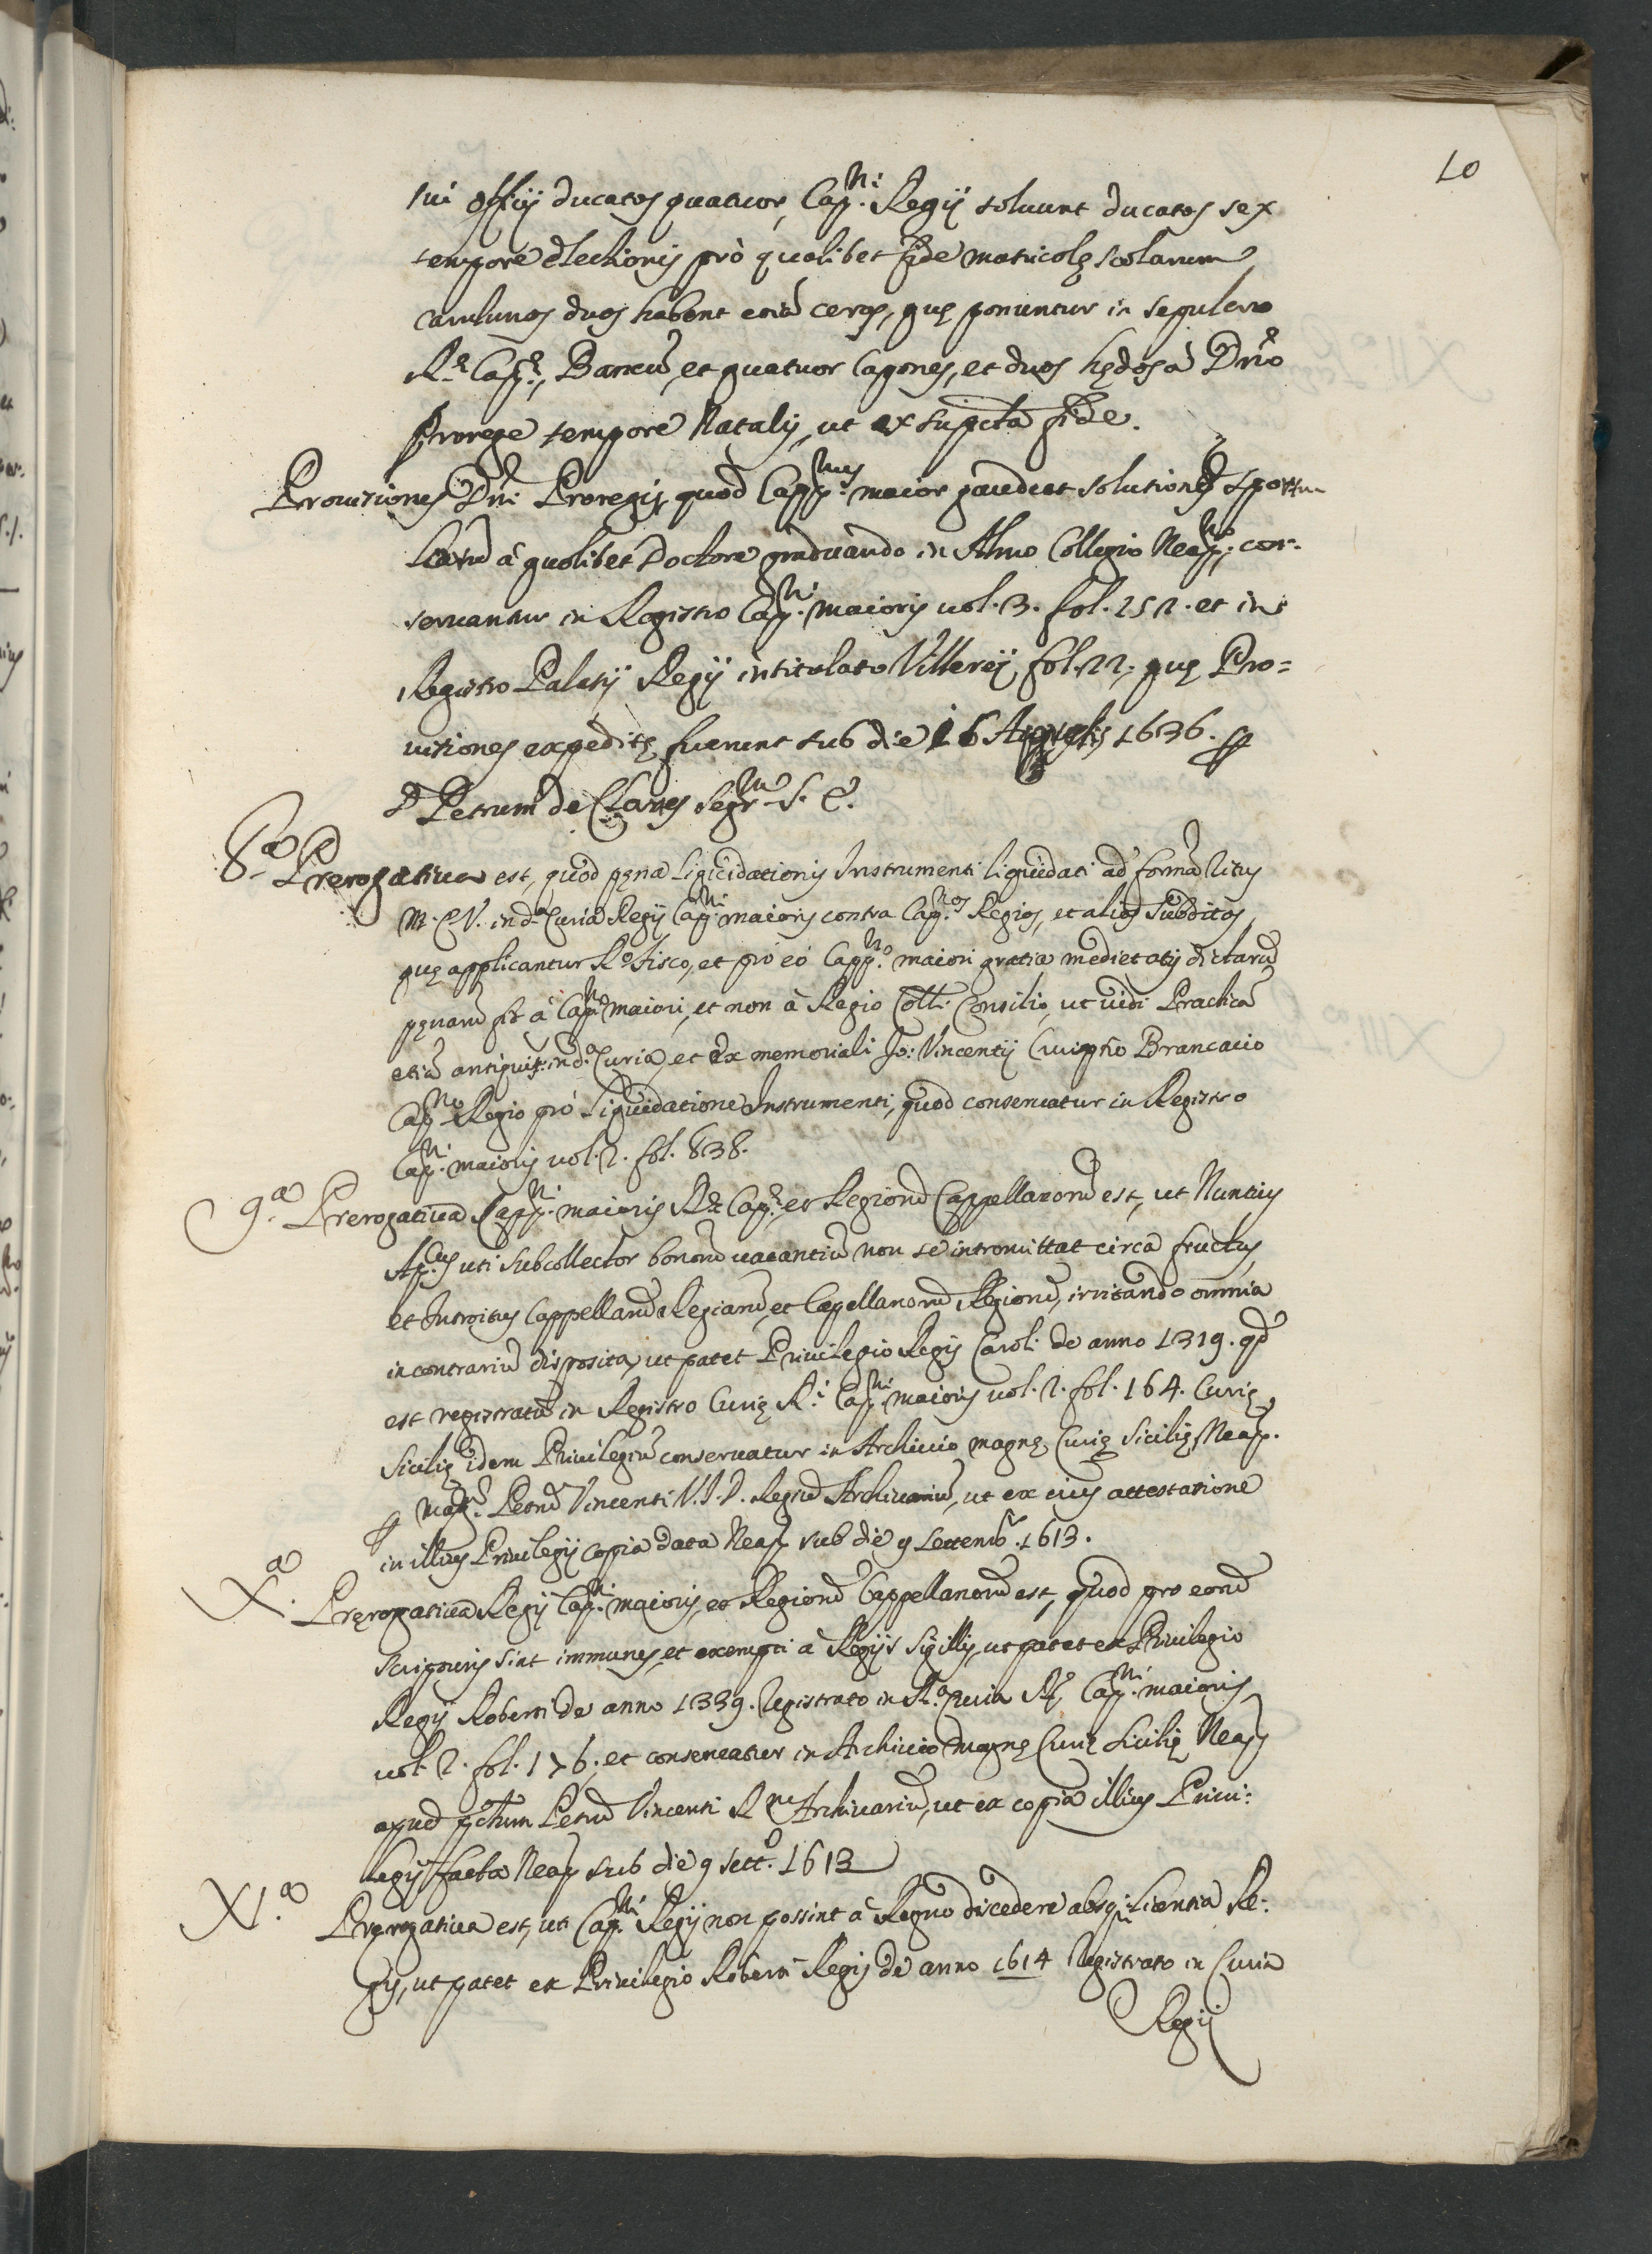 10
sui officij ducatos quatuor, Cap.ni Regij soluunt ducatos sex
tempore electionis prò qualibet fide matricolę scolarum
carulunos duos habent etiā cereos, quę ponuntur in sepulcro
R.ę Capp.ę, et quatuor Capones, et duos hędos à Dn̄o
Prorege tempore Natalis, ut ex sup.cta fide.
Prouisiones Dn̄i Proregis, quod Capp.nus maior gaudeat solutione sportu-
larū à quolibet Doctore graduando in Almo Collegio Neap.no con-
seruantur in Registro Cap.ni maioris uol. 3. fol. 252. et in
Registro Palatij Regij intitolato Villereij fol. 22. quę Pro=
uisiones expeditę fuerunt sub die 16 Augusti 1636. p
D. Petrum de Segr.m S. E.
8.a Prerogatiua est, quod pęna Liquidationis Instrumenti liquidati ad formā Ritus
M. C. V. in d.a Curia Regij Cap.ni maioris contra Cap.nos Regios, et alios Subditos,
quę applicantur R.o Fisco, et prò eò Capp.no maiori gratia medietatis dictarū
pęnarū fit à Cap.no maiori, et non à Regio Coll. Consilio, ut uidi Practicā
etiā antiquis: in d.a Curia, et ex memoriali Jo: Vincentij Brancacio
Cap.no Regio prò Liquidatione Instrumenti, quod conseruatur in Registro
Cap.ni maioris uol. 2. fol. 838.
9.a Prerogatiua Capp.ni maioris R.ę Cap.ę et Regiorū Cappellanorū est, ut Nuntius
Ap.cus uti Subcollector bonorū uacantiū non se intromittat circa fructus,
et Introitus Cappellarū Regiarū, et Capellanorū Regiorū, irritando omnia
in contrariū disposita, ut patet Priuilegio Regis Caroli de anno 1319. qd
est registratū in Registro Curię R.i Cap.ni maioris uol. 2. fol. 164. Curię
Sicilię idem Priuilegiū conseruatur in Archiuio magnę Curię Sicilię Neap.
p Mag.m Petrū Vincenti V.I.D. Regiū Archiuariū, ut ex eius attestatione
in illius Priuilegij copia data Neap. sub die 9 Settemb.r 1613.
X.a Pręrogatiua Regij Cap.ni maioris, et Regiorū Cappellanorū est, quod pro eorū
Scripturis sint immunes, et exempti à Regijs Sigillis, ut patet ex Priuilegio
Regis Roberti de anno 1339. Registrato in R.a Curia R.i Cap.ni maioris
uol. 2. fol. 176. et conseruatur in Archiuio magnę Curię Sicilię Neap.
apud p̄ctum Petrū Vincenti R.m Archiuariū, ut ex copia illius Priui:
legij facta Neap. sub die 9 sett.o 1613
XI.a Pręrogatiua est, uti Cap.ni Regij non possint à Regno discedere absq. Licentia Re:
gis, ut patet ex Priuilegio Roberti Regis de anno 1614 Registrato in Curia
Regij